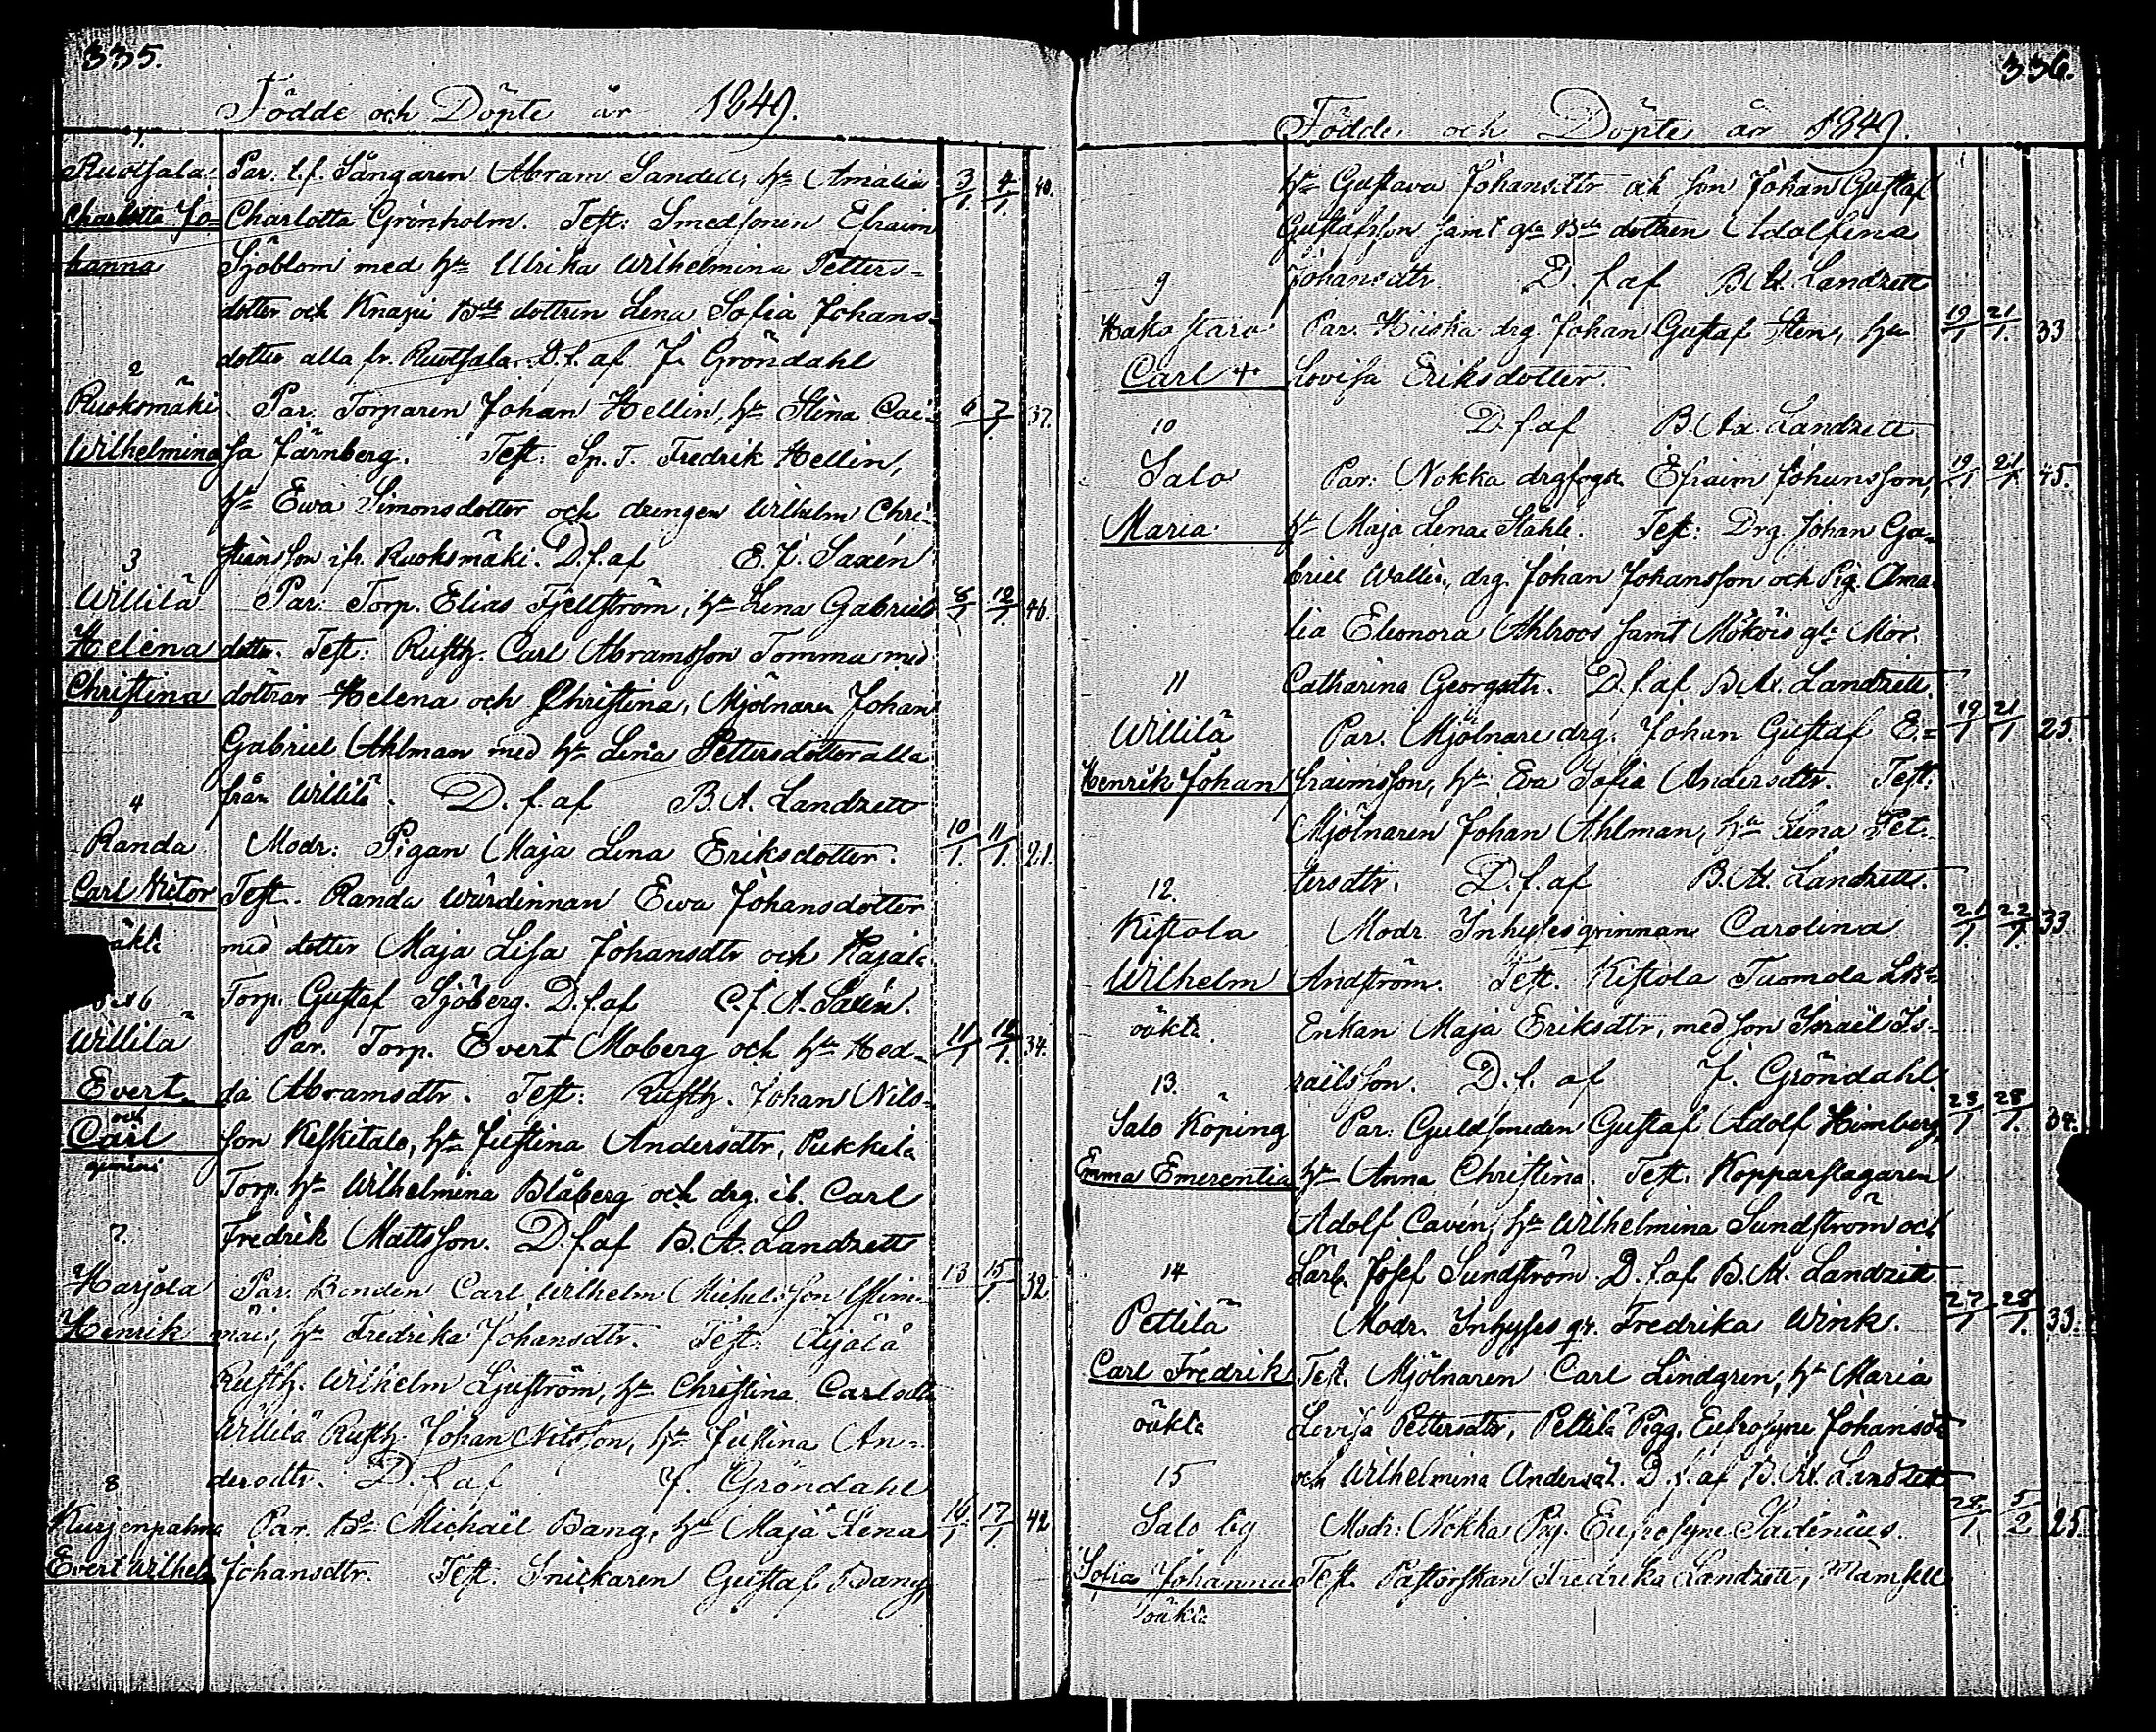 335.
Födde och Döpte år 1849.
1.
Ruotsala. Par. t.f. Sångaren Abram Sandell, hu Amalia 3/1. 4/1. 40.
Charlotta Jo= Charlotta Grönholm. Test: Smedsonen Efraim
hanna Sjöblom med hu Ulrika Wilhelmina Petters=
dotter och Knapi Bde dottren Lena Sofia Johans=
dotter alla fr. Ruotsala. D.f. af J. Gröndahl
2
Ruoksmäki Par. Torparen Johan Hellin, hu Stina Cai= 6 7/1. 37.
Wilhelmina sa Järnberg. Test: Sp. T. Fredrik Hellin,
hu Ewa Simonsdotter och drengen Wilhelm Chri=
stiansson ifr. Ruoksmäki. D.f. af E. J. Saxén
3
Willilä Par: Torp. Elias Fjellström, hu Lena Gabriels 8/1 12/1 46.
Helena dotter. Test: Rusth. Carl Abramsson Tomma med
Christina döttrar Helena och Christina, Mjölnaren Johan
Gabriel Ahlman med hu Lena Pettersdotter alla
från Willilä. D. f. af B. A. Landzett
4
Randa Modr: Pigan Maja Lena Eriksdotter. 10/1. 11/1. 21.
Carl Victor Test. Randa wärdinnan Ewa Johansdotter
äkta med dotter Maja Lisa Johansdtr och Kajala
5 & 6 Torp. Gustaf Sjöberg. D.f. af C.f. A. Saxén.
Willilä Par. Torp. Evert Moberg och hu Hed= 11/1 12/1. 34.
Evert da Abramsdtr. Test: Rusth. Johan Nils=
och
Carl son Keskitalo, hu Justina Andersdtr, Pukkila
gemini
Torp. hu Wilhelmina Blåberg och drg. ib. Carl
7. Fredrik Mattsson. D.f. af B. A. Landzett
Harjola Par. Bonden Carl Wilhelm Michelsson 13 15/1. 32
Henrik hu Fredrika Johansdtr. Test. Äijälä
Rusth. Wilhelm Ljuström, hu Christina Carlsdtr
Willilä Rusth. Johan Nilsson, hu Justina An=
dersdtr. D. f. af J. Gröndahl
8
Kurjenpahna Par. Michaël Bang, hu Maja Lena 16/1 17/1. 42
Evert Wilhelm Johansdtr. Test: Snickaren Gustaf Bang,
336.
Födde och Döpte år 1849.
hu Gustava Johansdtr och son Johan Gustaf
Gustafsson samt Bde dottren Adolfina
9 Johansdtr. D. f. af B. A. Landzett
Hakostaro Par. Hiiska drg Johan Gustaf Sten, hu 19/1 21/1. 33
Carl + Lovisa Eriksdotter.
10 D. f. af B. A. Landzett
Salo Par: Nokka drgfogde Efraim Johansson, 19/1 21/1 45.
Maria hu Maja Lena Ståhle. Test: Drg. Johan Ga=
briel Wallin, drg. Johan Johansson och Pig. Ama=
lia Eleonora Ahlroos samt Mor.
11 Catharina Georgsdtr. D. f. af B. A. Landzett.
Willilä Par. Mjölnare drg. Johan Gustaf E.= 19/1 21/1 25.
Henrik Johan fraimsson, hu Eva Sofia Andersdtr. Test.
Mjölnaren Johan Ahlman, hu Lena Pet=
12. tersdtr. D. f. af B. A. Landzett.
Kistola Modr Inhyses qvinnan Carolina 21/1. 22/1. 33
Wilhelm Andström. Test. Kistola Tuomola
oäkta. Enkan Maja Eriksdtr, med son Israël Is=
13. railsson. D. f. af J. Gröndahl.
Salo Köping Par: Guldsmeden Gustaf Adolf Himberg, 23/1 28/1. 34.
Emma Emerentia hu Anna Christina. Test. Kopparslagaren
Adolf Cavén, hu Wilhelmina Sundström och
14 Lärl. Josef Sundström D. f. af B. A. Landzett
Pettilä Modr. Inhyses qv. Fredrika Wink. 27/1 28/1. 33.
Carl Fredrik Test. Mjölnaren Carl Lindgren, hu Maria
oäkta Lovisa Pettersdtr, Pettilä Pigg. Eufrosyne Johansdr
15 och Wilhelmina Andersdt. D. f. af B. A. Landzett
Salo by Modr: Nokka Pig. Eufrosyne Sadenius. 28/1. 5/2 25.
Sofia Johanna Test. Pastorskan Fredrika Landzett, Mamsell
oäkta